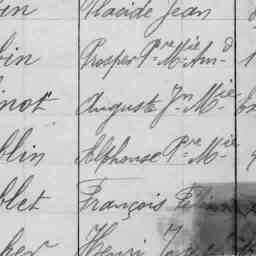 Placide Jean
bin Prosper Pre Mie Amd
inot Auguste Jn Mie
blin Alphonse Pre Mie
blet François
her Henri